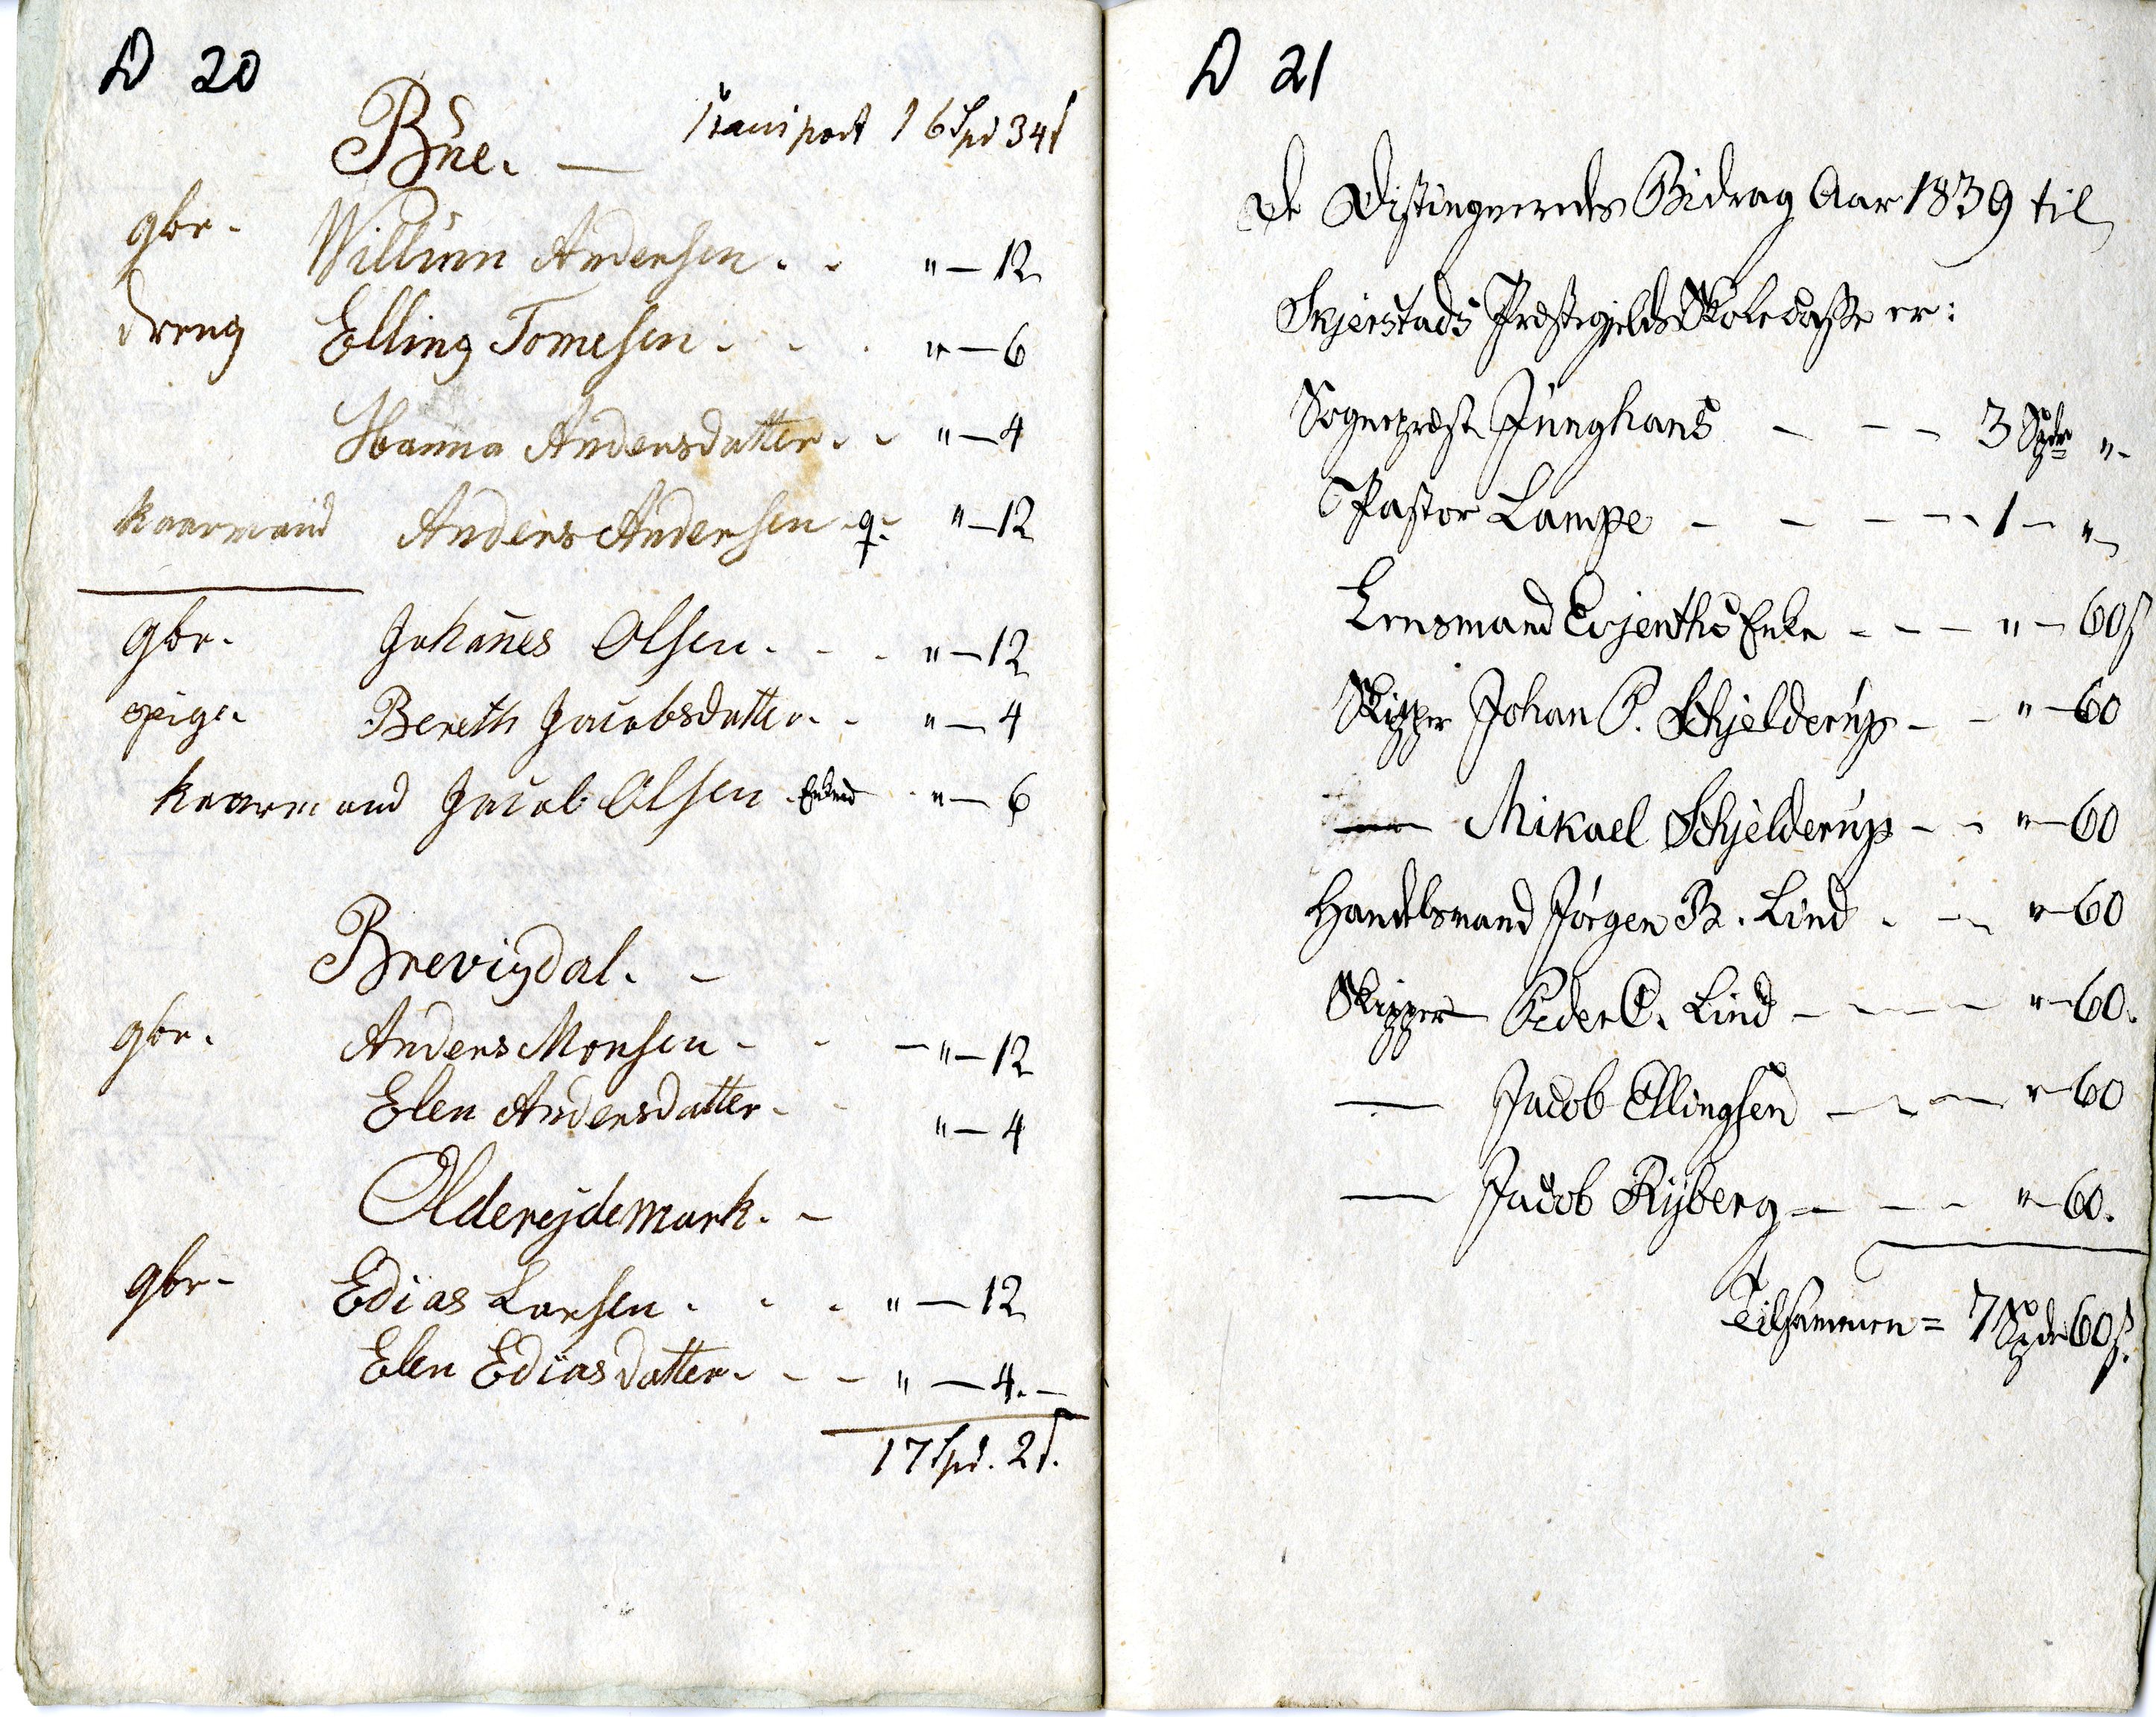 D 20
Transport 16 Spd 34 ß
Bue. —
gbr. Willum Andersen . . " — 12
dreng Elling Tomesen . . . " — 6
Hanna Andersdatter . . " — 4
kaarmand Anders Andersen . g. . " — 12
gbr. Johanes Olsen . . . " — 12
pige. Bereth Jacobsdatter . . " — 4
kaarmand Jacob Olsen Enkmd . " — 6
Brevigdal. —
gbr. Anders Monsen - - — " — 12
Elen Andersdatter - - " — 4
Oldereydemark. —
gbr - Edias Larsen . . . " — 12
Elen Ediasdatter . - - " — 4. —
17 Spd. 2 ß.
D 21
De Distingveredes Bidrag Aar 1839 til
Skjerstads Præstegjelds Skolecasse er:
Sognepræst Junghans - - - 3 Spdr " -
Pastor Lampe - - - - 1 - " -
Lensmand Evjenths Enke - - - " - 60 ß
Skipper Johan P. Schjelderup - - " - 60
— Mikael Schjelderup - - " - 60
Handelsmand Jörgen B. Lind . - " - 60
Skipper Peder C. Lind - - - " - 60.
— Jacob Ellingsen - - - " - 60
— Jacob Ryberg - - - " - 60.
Tilsammen = 7 Spdr 60 ß.